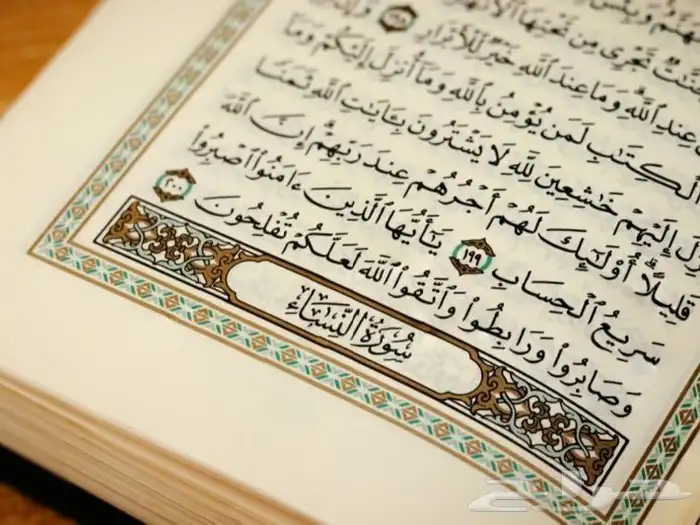 جَنَّٰتٌ تَجْرِى مِن تَحْتِهَا ٱلْأَنْهَٰرُ
عِندِ ٱللَّهِ وَمَا عِندَ ٱللَّهِ خَيْرٌ لِّلْأَبْرَارِ ١٩٨ وَإِنَّ مِنْ
ٱلْكِتَٰبِ لَمَن يُؤْمِنُ بِٱللَّهِ وَمَآ أُنزِلَ إِلَيْكُمْ وَمَآ
أُنزِلَ إِلَيْهِمْ خَٰشِعِينَ لِلَّهِ لَا يَشْتَرُونَ بِـَٔايَٰتِ ٱللَّهِ ثَمَنًا
قَلِيلًا ۗ أُو۟لَٰٓئِكَ لَهُمْ أَجْرُهُمْ عِندَ رَبِّهِمْ ۗ إِنَّ ٱللَّهَ
سَرِيعُ ٱلْحِسَابِ ١٩٩ يَٰٓأَيُّهَا ٱلَّذِينَ ءَامَنُوا۟ ٱصْبِرُوا۟
وَصَابِرُوا۟ وَرَابِطُوا۟ وَٱتَّقُوا۟ ٱللَّهَ لَعَلَّكُمْ تُفْلِحُونَ ٢٠٠
سُورَةُ ٱلنِّسَاءِ
حراج